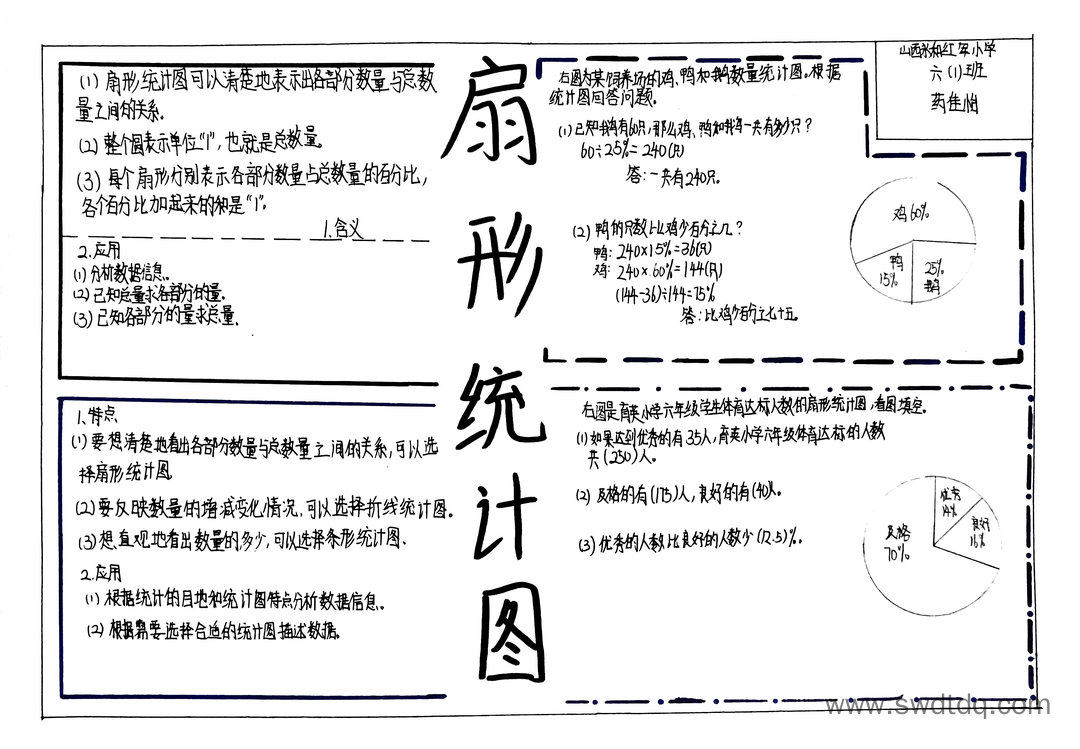 扇形统计图
山西永和红军小学
六(1)班
药佳怡
(1) 扇形统计图可以清楚地表示出各部分数量与总数
量之间的关系.
(2) 整个圆表示单位“1”,也就是总数量.
(3) 每个扇形分别表示各部分数量占总数量的百分比,
各个百分比加起来的和是“1”.
1.含义
2.应用
(1)分析数据信息.
(2)已知总量求各部分的量.
(3)已知各部分的量求总量.
1.特点
(1)要想清楚地看出各部分数量与总数量之间的关系,可以选
择扇形统计图
(2)要反映数量的增减变化情况,可以选择折线统计图.
(3)想直观地看出数量的多少,可以选择条形统计图.
2.应用
(1) 根据统计的目地和统计图特点分析数据信息.
(2) 根据需要选择合适的统计图描述数据.
右图为某饲养场的鸡,鸭和鹅数量统计图.根据
统计图回答问题.
(1)已知鹅有60只,那么鸡、鸭和鹅一共有多少只?
60÷25%=240(只)
答:一共有240只.
(2) 鸭的只数比鸡少百分之几?
鸭: 240×15%=36(只)
鸡: 240×60%=144(只)
(144-36)÷144=75%
答:比鸡少百分之七十五.
鸡60%
鸭
15%
25%
鹅
右图是育英小学六年级学生体育达标人数的扇形统计图,看图填空.
(1)如果达到优秀的有35人,育英小学六年级体育达标的人数
共(250)人.
(2) 及格的有(175)人,良好的有(40)人.
(3) 优秀的人数比良好的人数少(12.5)%.
优秀
14%
良好
16%
及格
70%
www.swdtdq.com